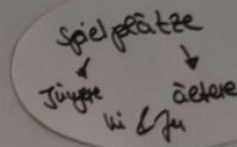 Spielplätze
Jüngere ältere